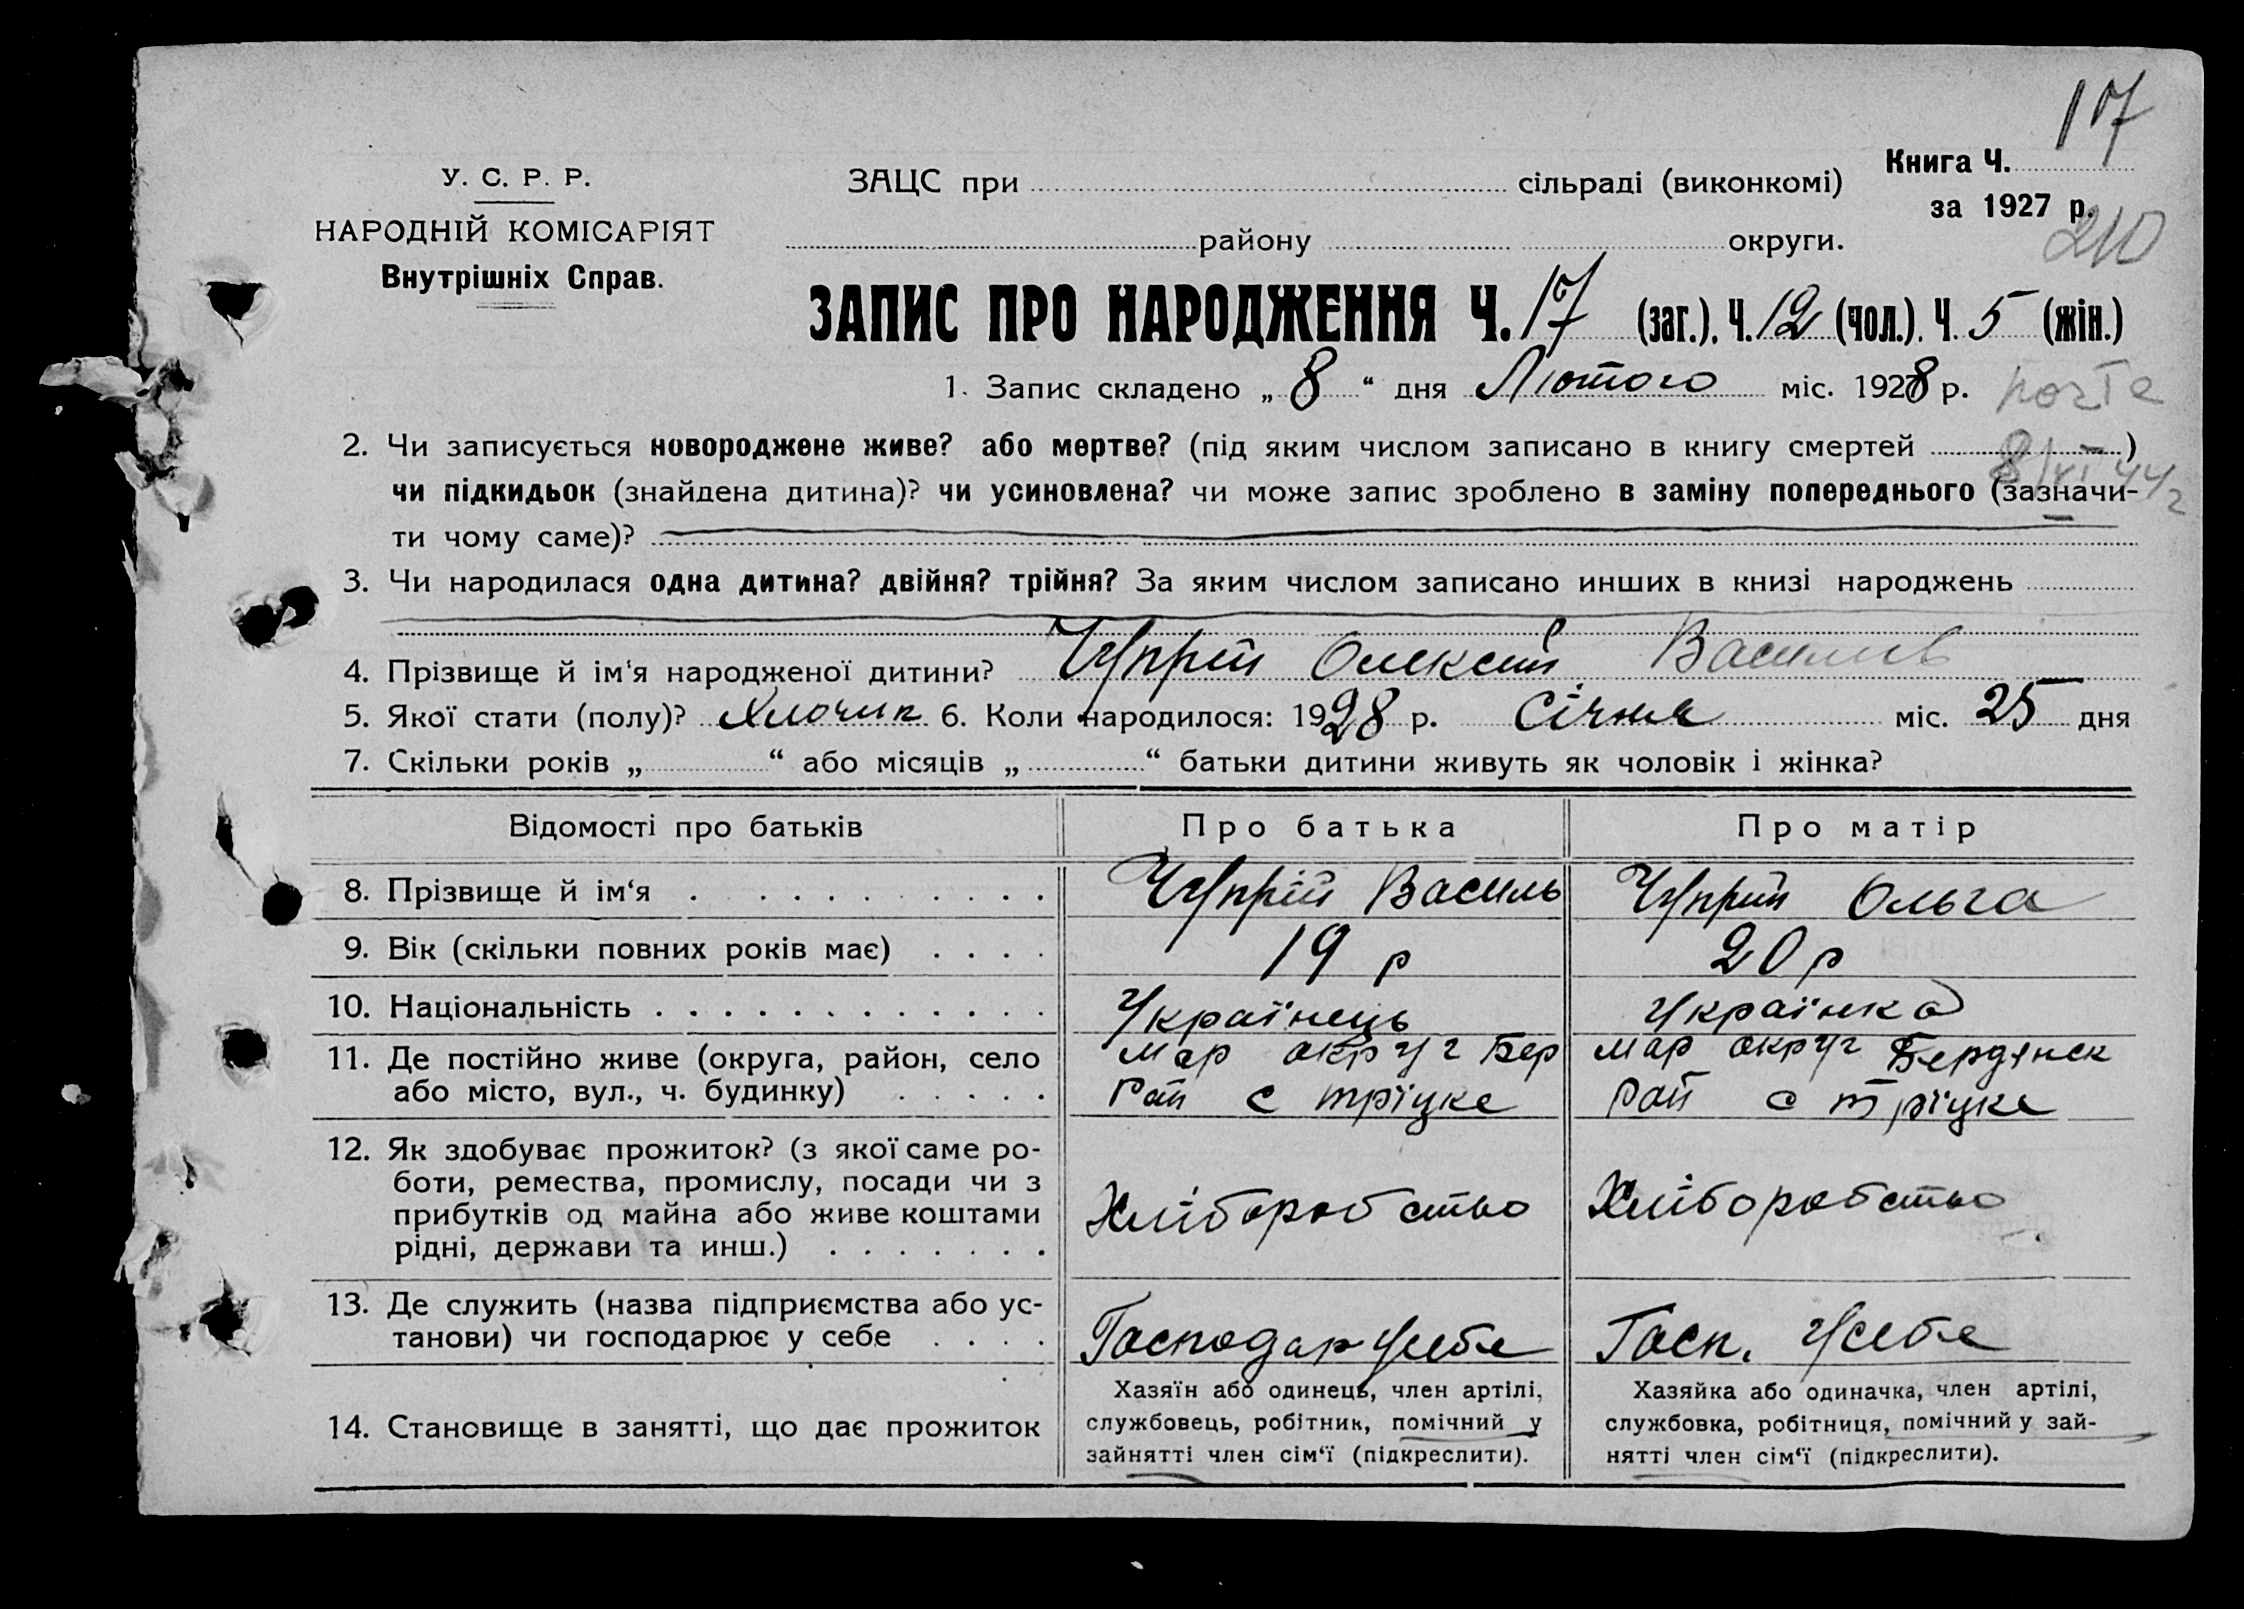 17
У. С. Р. Р.
НАРОДНІЙ КОМІСАРІЯТ
Внутрішніх Справ.
ЗАЦС при сільраді (виконкомі)
району округи.
Книга Ч.
за 1927 р.
210
ЗАПИС ПРО НАРОДЖЕННЯ Ч. 17 (заг.), Ч. 12 (чол.). Ч. 5 (жін.)
1. Запис складено „ 8 “ дня Лютого міс. 1928 р.
2. Чи записується новороджене живе? або мертве? (під яким числом записано в книгу смертей )
чи підкидьок (знайдена дитина)? чи усиновлена? чи може запис зроблено в заміну попереднього (зазначи-
ти чому саме)?
3. Чи народилася одна дитина? двійня? трійня? За яким числом записано инших в книзі народжень
4. Прізвище й ім‘я народженої дитини? Чуприй Олексій Василів
5. Якої стати (полу)? Хлочик 6. Коли народилося: 1928 р. Січня міс. 25 дня
7. Скільки років „ “ або місяців „ “ батьки дитини живуть як чоловік і жінка?
Відомості про батьків Про батька Про матір
8. Прізвище й ім‘я Чупрій Василь Чуприй Ольга
9. Вік (скільки повних років має) 19 р 20 р
10. Національність Українець Українка
11. Де постійно живе (округа, район, село
або місто, вул., ч. будинку)
Мар округ Бер
Рай с тріцке
Мар округ Бердянск
рай с тріцке
12. Як здобуває прожиток? (з якої саме ро-
боти, ремества, промислу, посади чи з
прибутків од майна або живе коштами
рідні, держави та инш.)
Хліборобство
Хліборобство
13. Де служить (назва підприємства або ус-
танови) чи господарює у себе
Господар усебе
Госп. усебе
14. Становище в занятті, що дає прожиток
Хазяїн або одинець, член артілі,
службовець, робітник, помічний у
зайнятті член сім‘ї (підкреслити).
Хазяйка або одиначка, член артілі,
службовка, робітниця, помічний у зай-
нятті член сім‘ї (підкреслити).